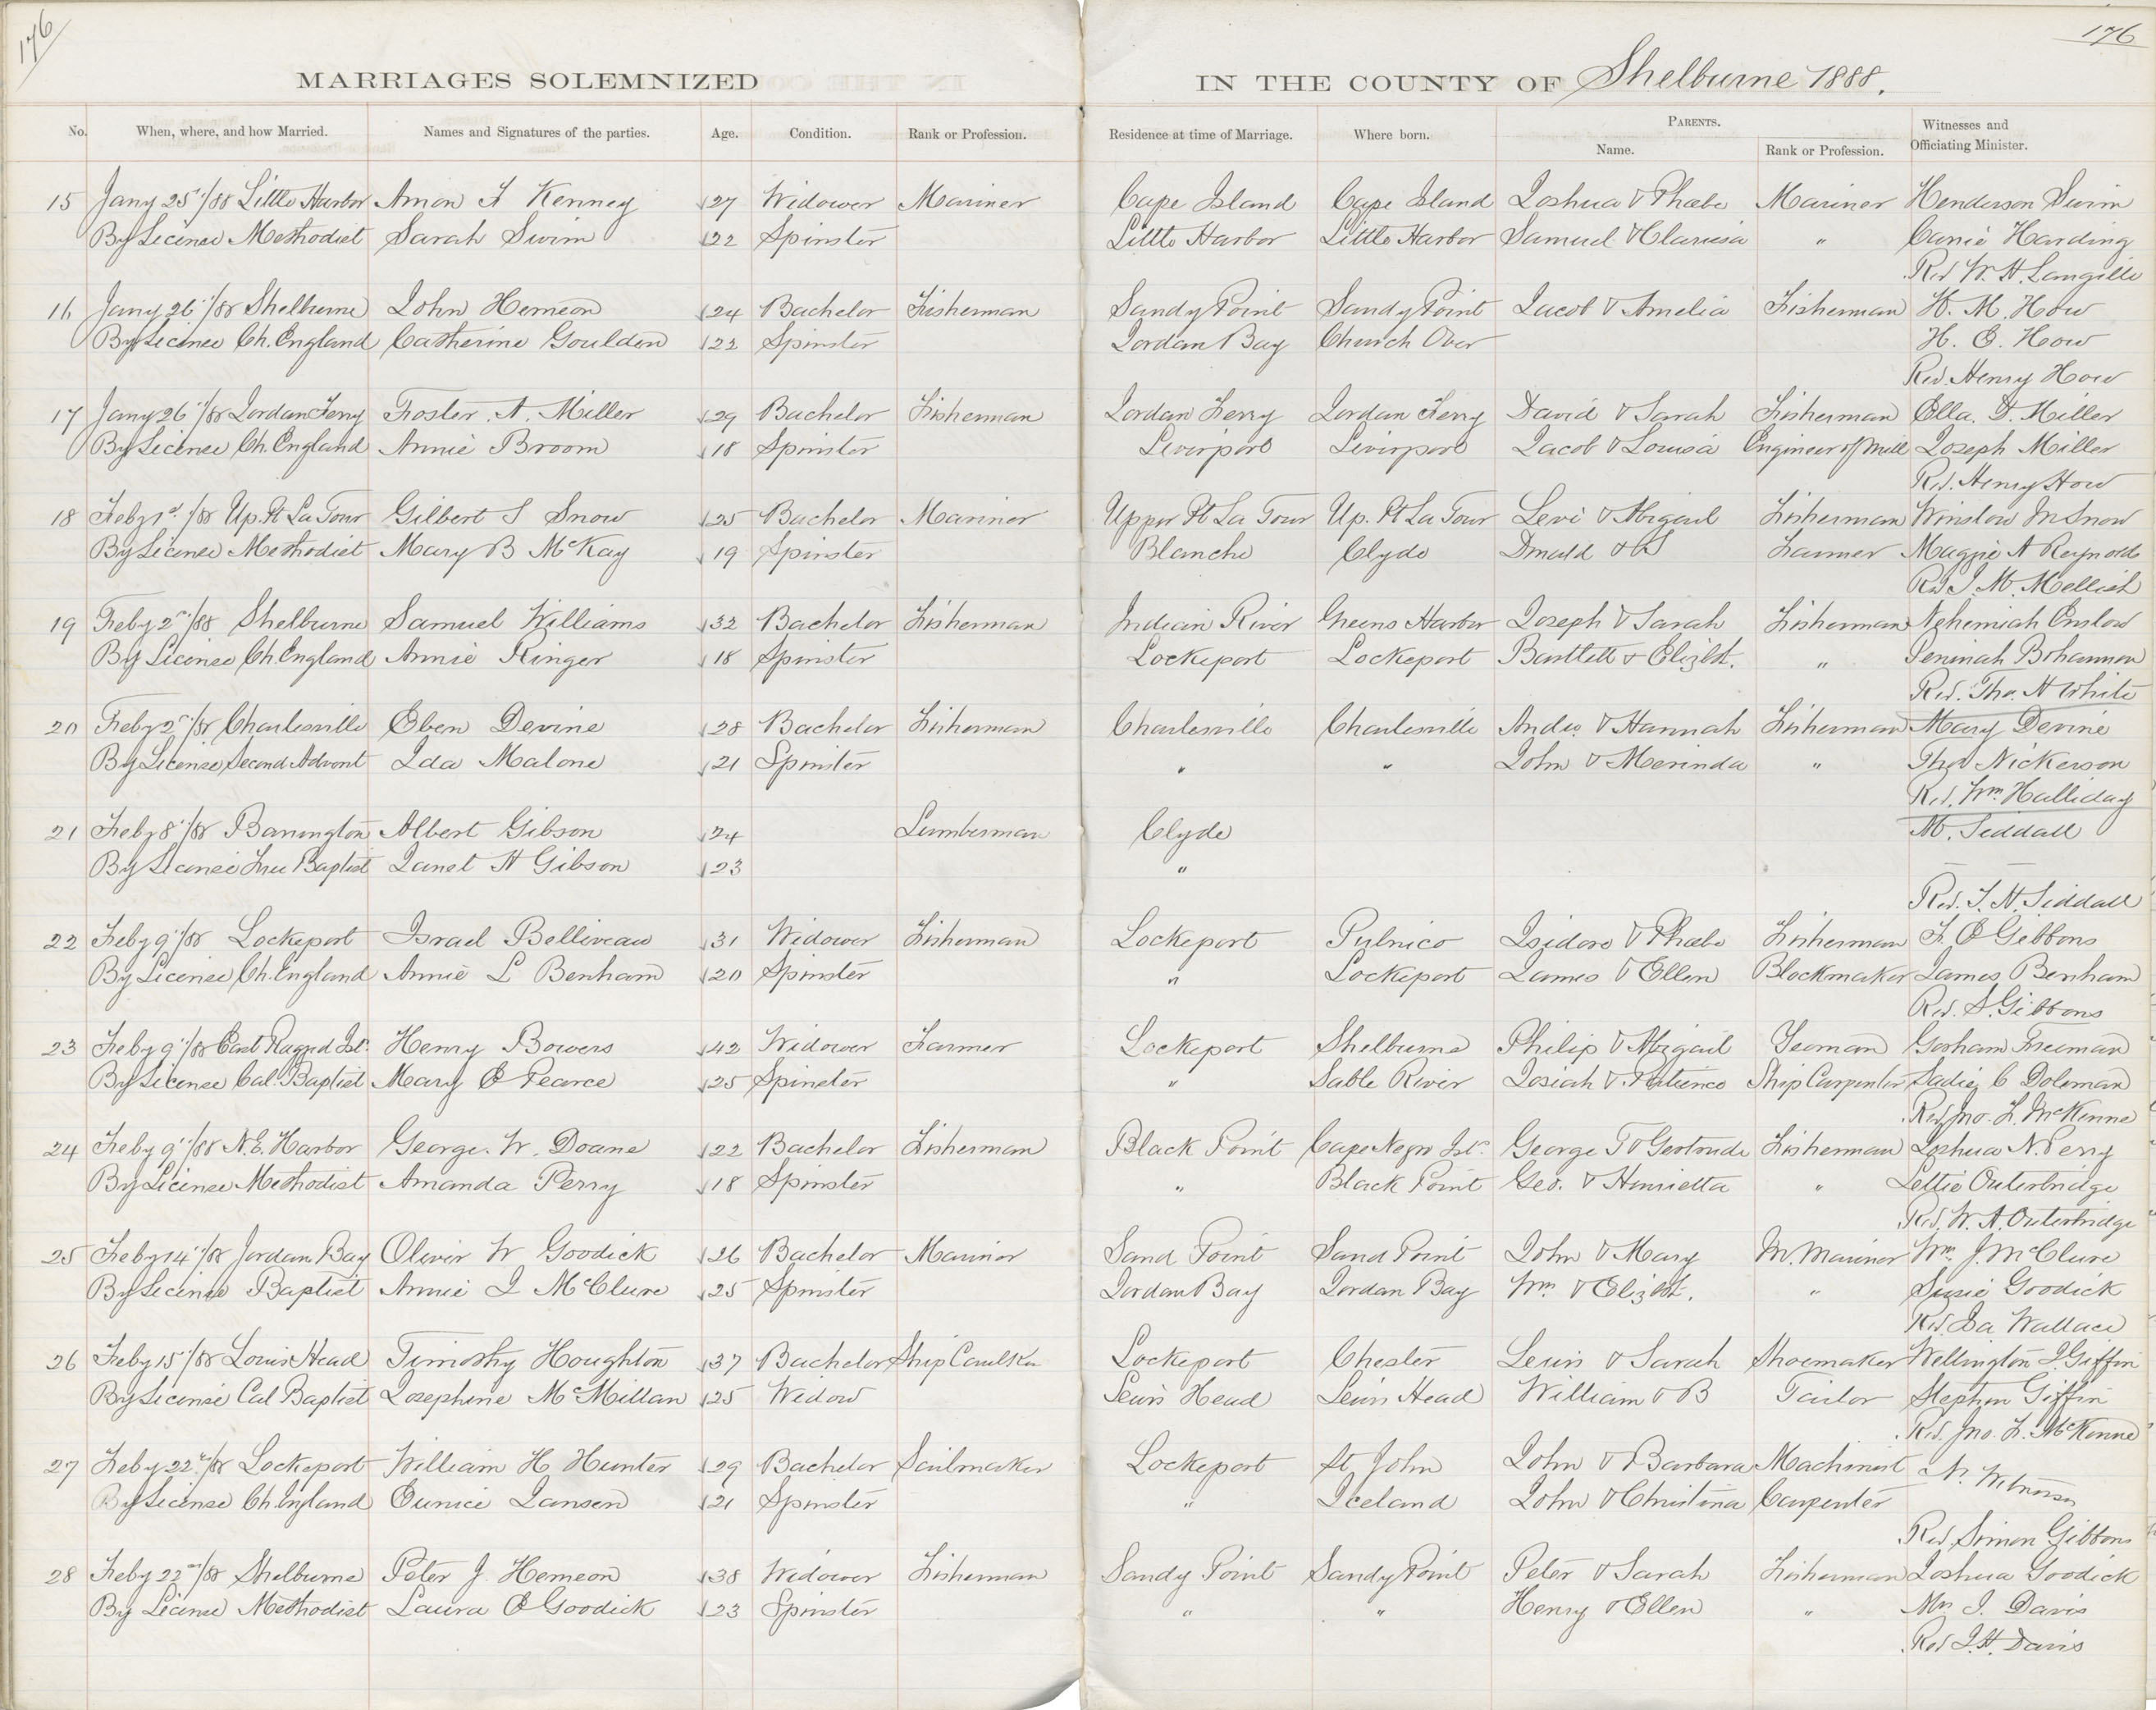 176
176
MARRIAGES SOLEMNIZED IN THE COUNTY OF Shelburne 1888.
No. When, where, and how Married. Names and Signatures of the parties. Age. Condition. Rank or Profession. Residence at time of Marriage. Where born. PARENTS. Name. Rank or Profession. Witnesses and Officiating Minister.
15 Jany 25"/88 Little Harbor Amon A Kenney 27 Widower Mariner Cape Island Cape Island Joshua & Phoebe Mariner Henderson Swim
By License Methodist Sarah Swim 22 Spinster Little Harbor Little Harbor Samuel & Clarissa " Harding
Rev W. H. Langille
16 Jany 26"/88 Shelburne John Hemeon 24 Bachelor Fisherman Sandy Point Sandy Point Jacob & Amelia Fisherman H. M. How
By License Ch. England Catherine Goulden 22 Spinster Jordan Bay Church Over H. E. How
Rev. Henry How
17 Jany 26"/88 Jordan Ferry Foster. A. Miller 29 Bachelor Fisherman Jordan Ferry Jordan Ferry David & Sarah Fisherman Ella. D. Miller
By License Ch. England Annie Broom 18 Spinster Liverpool Liverpool Jacob & Louisa Engineer of Mill Joseph Miller
Rev. Henry How
18 Feby 1st/88 Up. Pt La Tour Gilbert S Snow 25 Bachelor Mariner Upper Pt La Tour Up. Pt La Tour Levi & Abigail Fisherman Winslow M Snow
By License Methodist Mary B McKay 19 Spinster Blanche Clyde Donald & S Farmer Maggie A Reynolds
Rev J. M. Mellish
19 Feby 2"/88 Shelburne Samuel Williams 32 Bachelor Fisherman Indian River Greens Harbor Joseph & Sarah Fisherman Nehemiah Enslow
By License Ch. England Annie Ringer 18 Spinster Lockeport Lockeport Bartlett & Elizbt. " Bohannon
Rev. Tho. H White
20 Feby 2"/88 Charlesville Eben Devine 28 Bachelor Fisherman Charlesville Charlesville Andw & Hannah Fisherman Mary Devine
By License Second Advent Ida Malone 21 Spinster " " John & Merinda " Thos Nickerson
Rev. Wm Halliday
21 Feby 8"/88 Barrington Albert Gibson 24 Lumberman Clyde M. Siddall
By License Free Baptist Janet H Gibson 23 " — —
Rev. T. H. Siddall
22 Feby 9"/88 Lockeport Israel Belliveau 31 Widower Fisherman Lockeport Pubnico Isidore & Phoebe Fisherman F. E Gibbons
By License Ch. England Annie L Benham 20 Spinster " Lockeport James & Ellen Blockmaker James Benham
Rev. S. Gibbons
23 Feby 9"/88 East Ragged Isl. Henry Bowers 42 Widower Farmer Lockeport Shelburne Philip & Abigail Yeoman Gorham Freeman
By License Cal. Baptist Mary E Pearce 25 Spinster " Sable River Josiah & Patience Ship Carpenter Sadie C Doleman
Rev Jno. L. McKinne
24 Feby 9"/88 N.E. Harbor George. W. Doane 22 Bachelor Fisherman Black Point Cape Negro Isl. George T & Gertrude Fisherman Joshua N. Perry
By License Methodist Amanda Perry 18 Spinster " Black Point Geo. & Henrietta " Lettie Outerbridge
Rev. W. A. Outerbridge
25 Feby 14"/88 Jordan Bay Oliver W Goodick 26 Bachelor Mariner Sand Point Sand Point John & Mary M. Mariner Wm. J. McClure
By License Baptist Annie I McClure 25 Spinster Jordan Bay Jordan Bay Wm. & Elizbt. " Susie Goodick
Rev. Isa Wallace
26 Feby 15"/88 Louis Head Timothy Houghton 37 Bachelor Ship Caulker Lockeport Chester Lewis & Sarah Shoemaker Wellington J. Giffin
By License Cal Baptist Josephine McMillan 25 Widow Lewis Head Lewis Head William & B Tailor Stephen Giffin
Rev. Jno. L. McKinne
27 Feby 22"/88 Lockeport William H Hunter 29 Bachelor Sailmaker Lockeport St John John & Barbara Machinist N. Witness
By License Ch. England Eunice Jansen 21 Spinster " Iceland John & Christina Carpenter
Rev. Simon Gibbons
28 Feby 22nd/88 Shelburne Peter J. Hemeon 38 Widower Fisherman Sandy Point Sandy Point Peter & Sarah Fisherman Joshua Goodick
By License Methodist Laura E Goodick 23 Spinster " " Henry & Ellen " Mrs J. Davis
Rev J. H. Davis